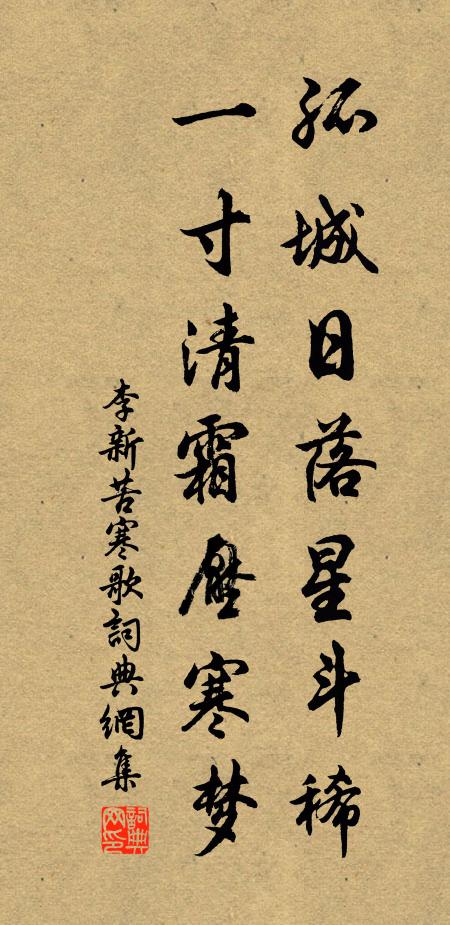 孤城日落星斗稀
一寸清霜压寒梦
李新苦寒歌詞典網集
詞典网印